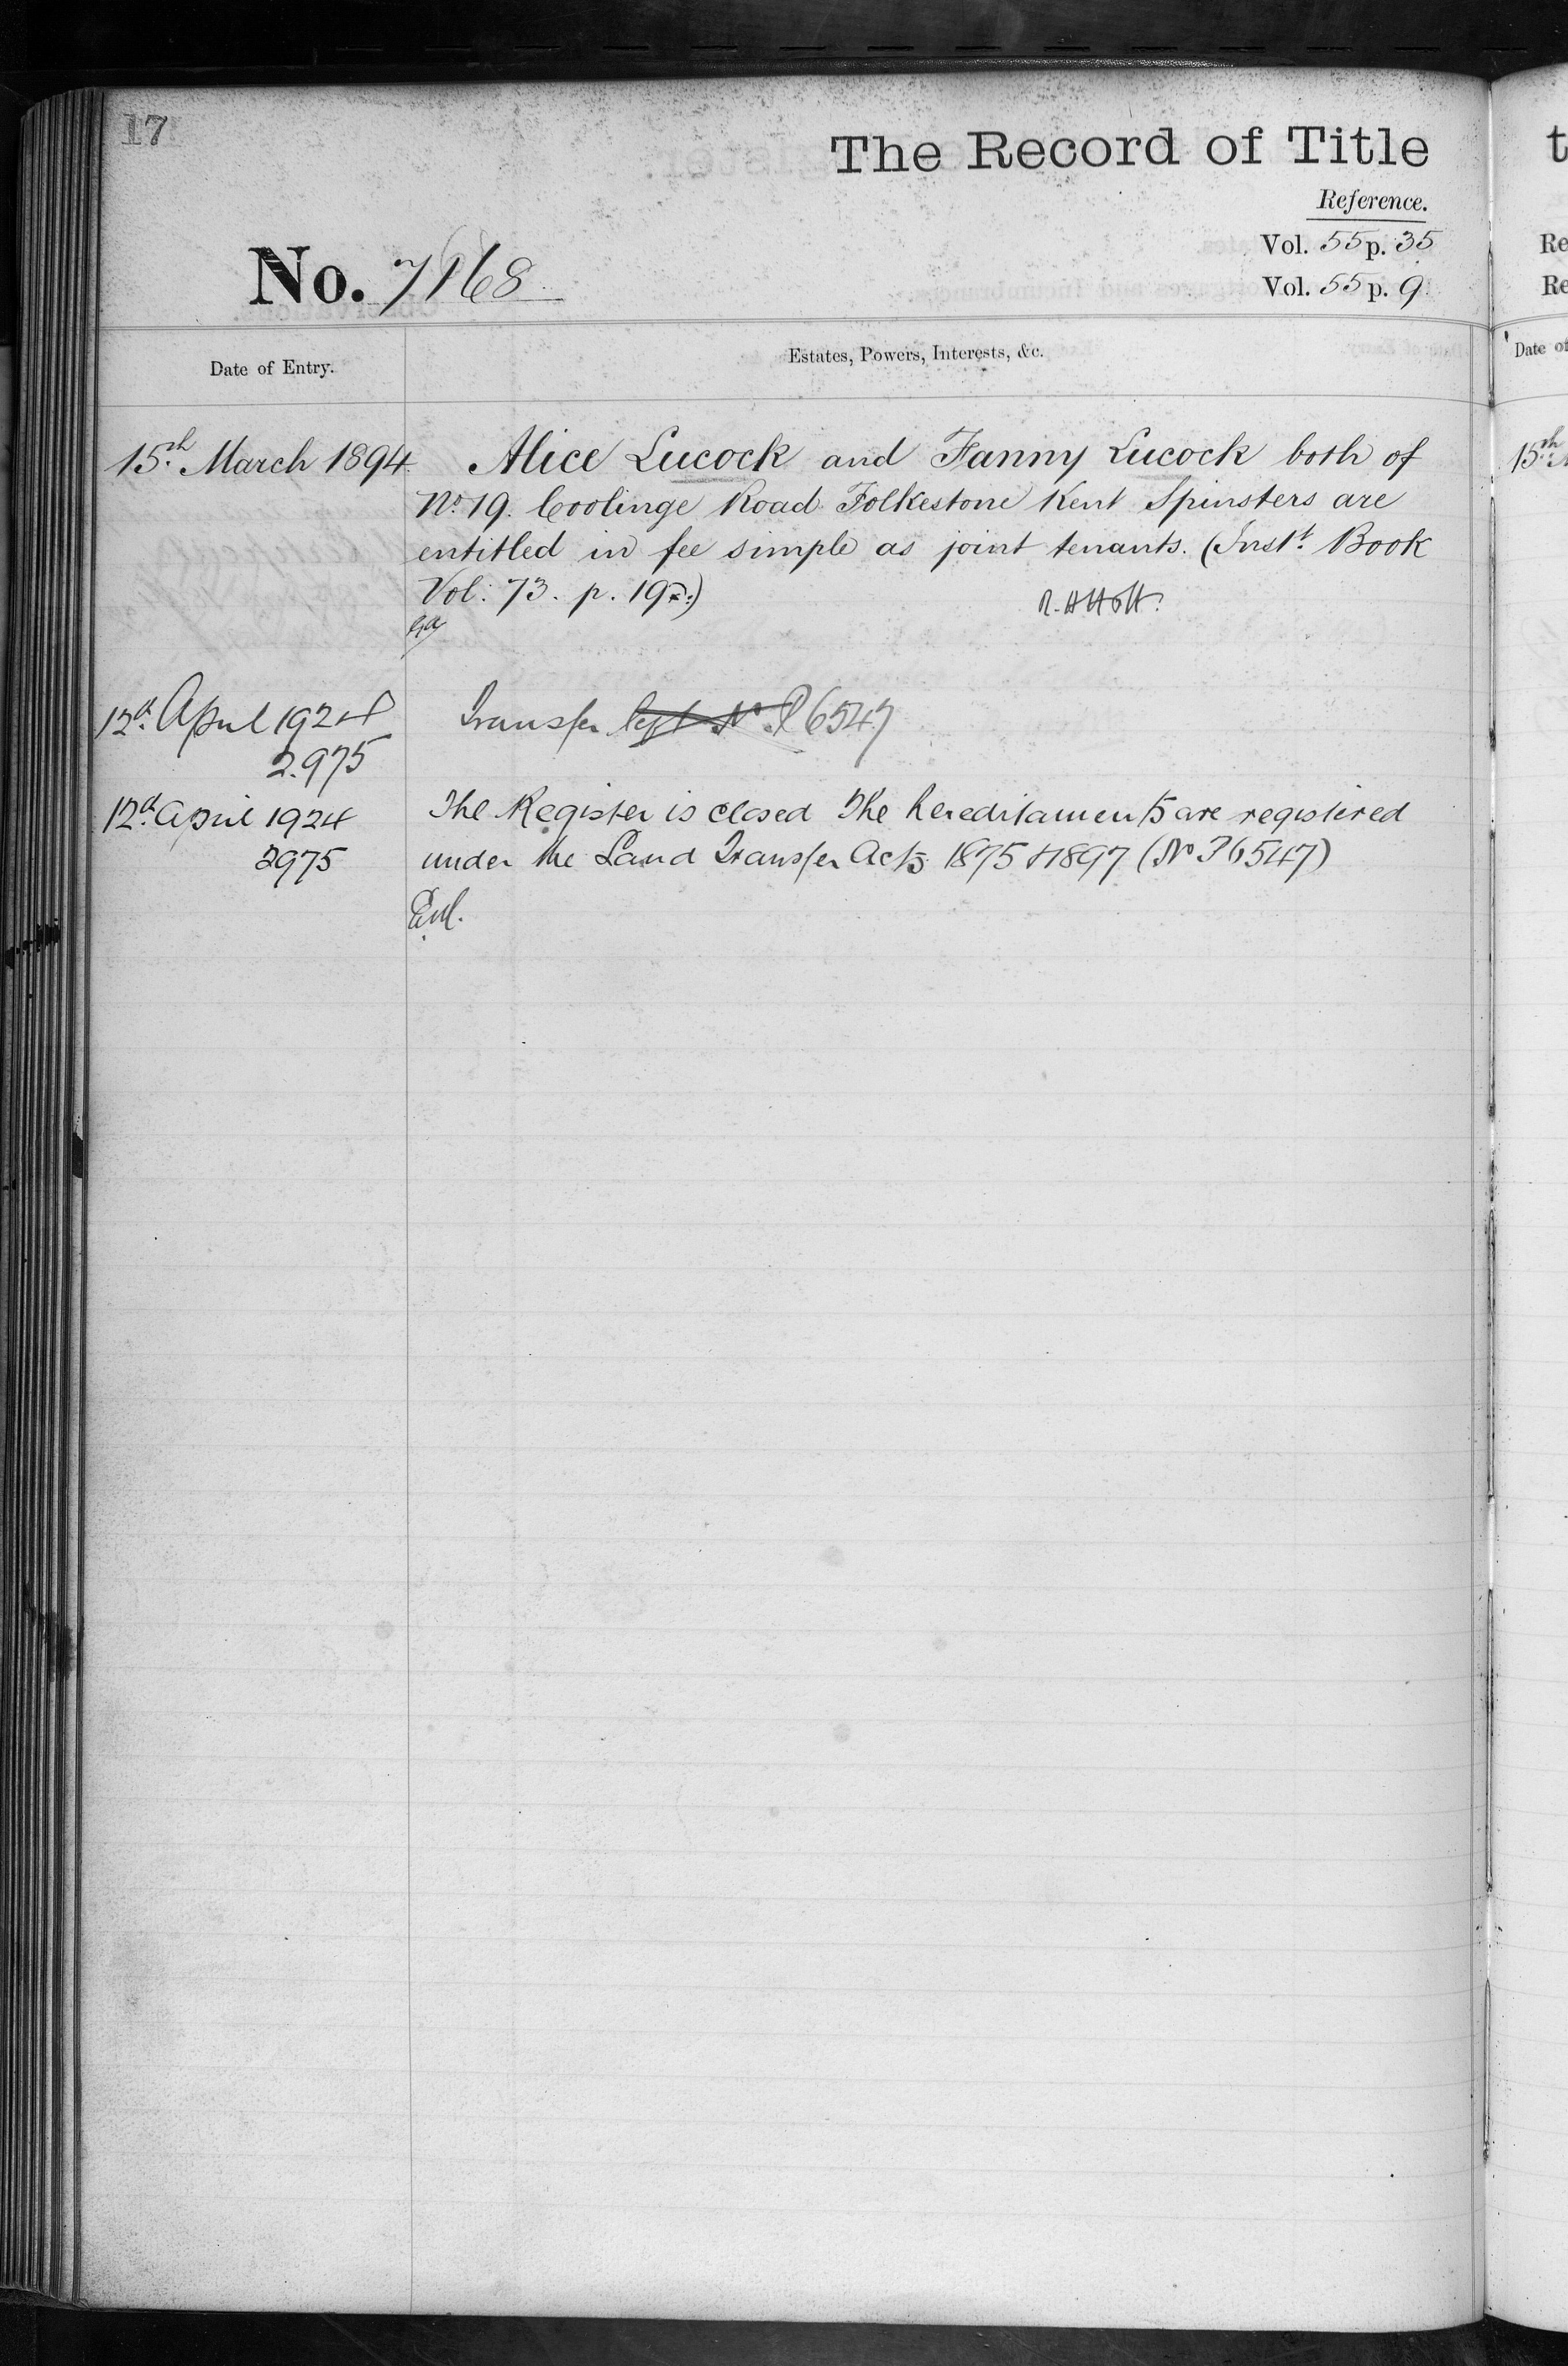 17
The Record of Title
Reference.
Vol. 55 p. 35
No. 7168
Vol. 55 p. 9
Date of Entry.
Estates, Powers, Interests, &c.
15th March 1894. Alice Lucock and Fanny Lucock both of
No. 19. Coolinge Road Folkestone Kent Spinsters are
entitled in fee simple as joint tenants. (Inst. Book
Vol: 73. p.
12th April 1924 Transfer left No P6547
2.975
12th April 1924 The Register is closed The hereditaments are registered
2975 under the Land Transfer Acts 1875 & 1897 (No P6547)
Re
Re
Date of
15th